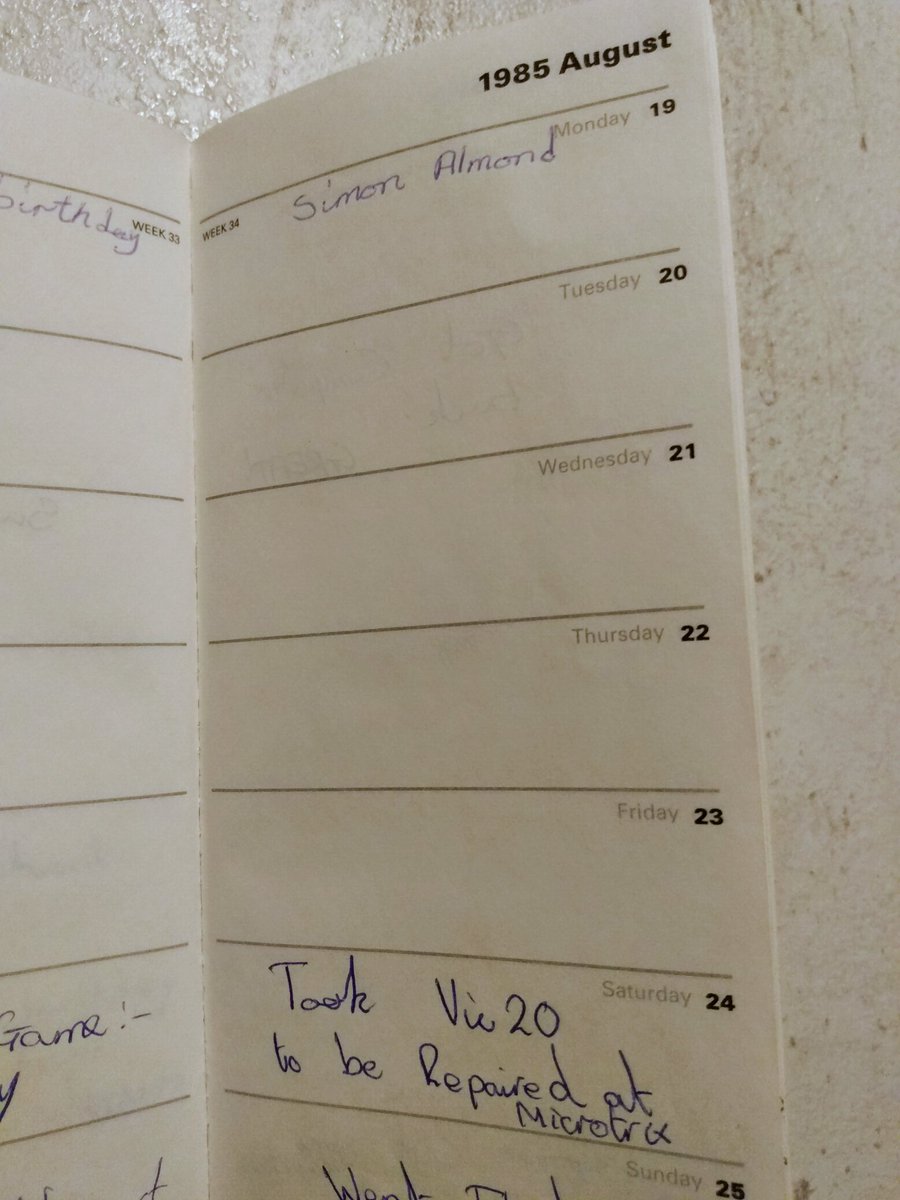 Birthday
WEEK 33
Game:-
1985 August
Monday 19
Simon Almond
WEEK 34
Tuesday 20
Wednesday 21
Thursday 22
Friday 23
Saturday 24
Took Vic 20
to be Repaired at
Microtrix
Sunday 25
Went